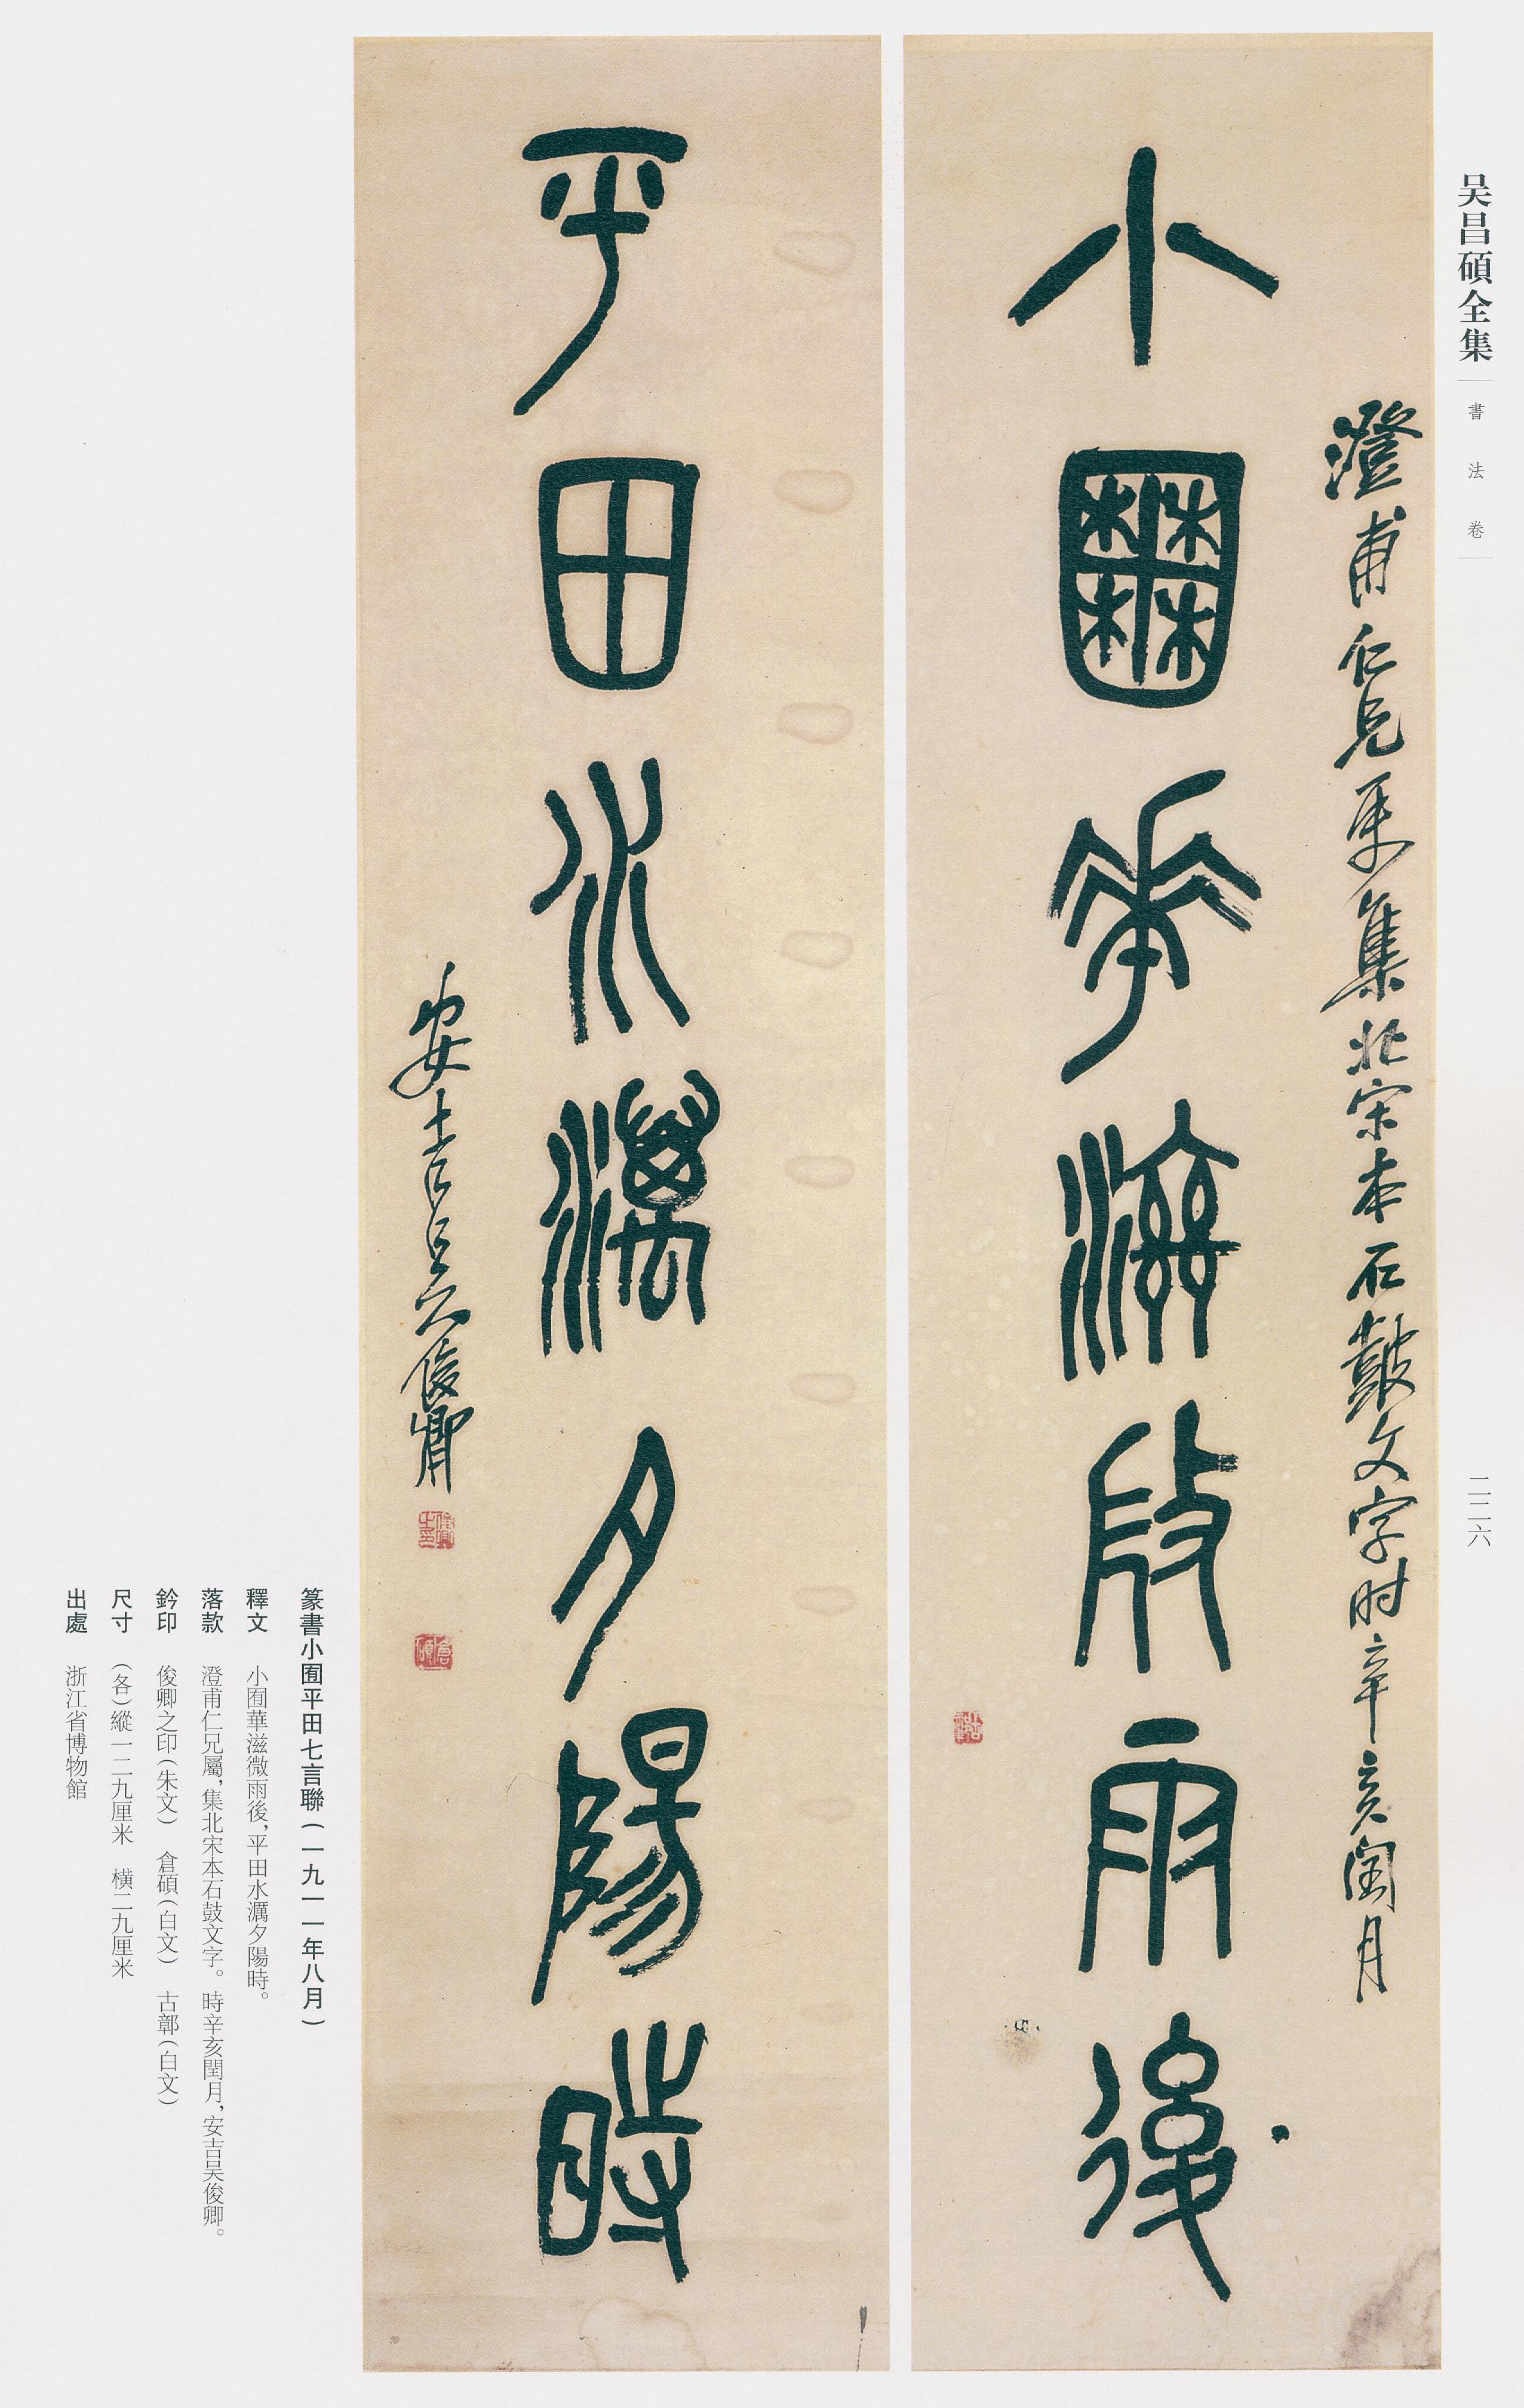 吴昌碩全集
書法卷
二二六
澄甫仁兄属集北宋本石鼓文字时辛亥闰月
小囿華滋微雨後
平田水澫夕陽時
安吉吳俊卿
俊卿之印
倉碩
篆書小囿平田七言聯(一九一一年八月)
釋文 小囿華滋微雨後,平田水澫夕陽時。
落款 澄甫仁兄屬,集北宋本石鼓文字。時辛亥閏月,安吉吴俊卿。
鈐印 俊卿之印(朱文) 倉碩(白文) 古鄣(白文)
尺寸 (各)縱一二九厘米 横二九厘米
出處 浙江省博物館